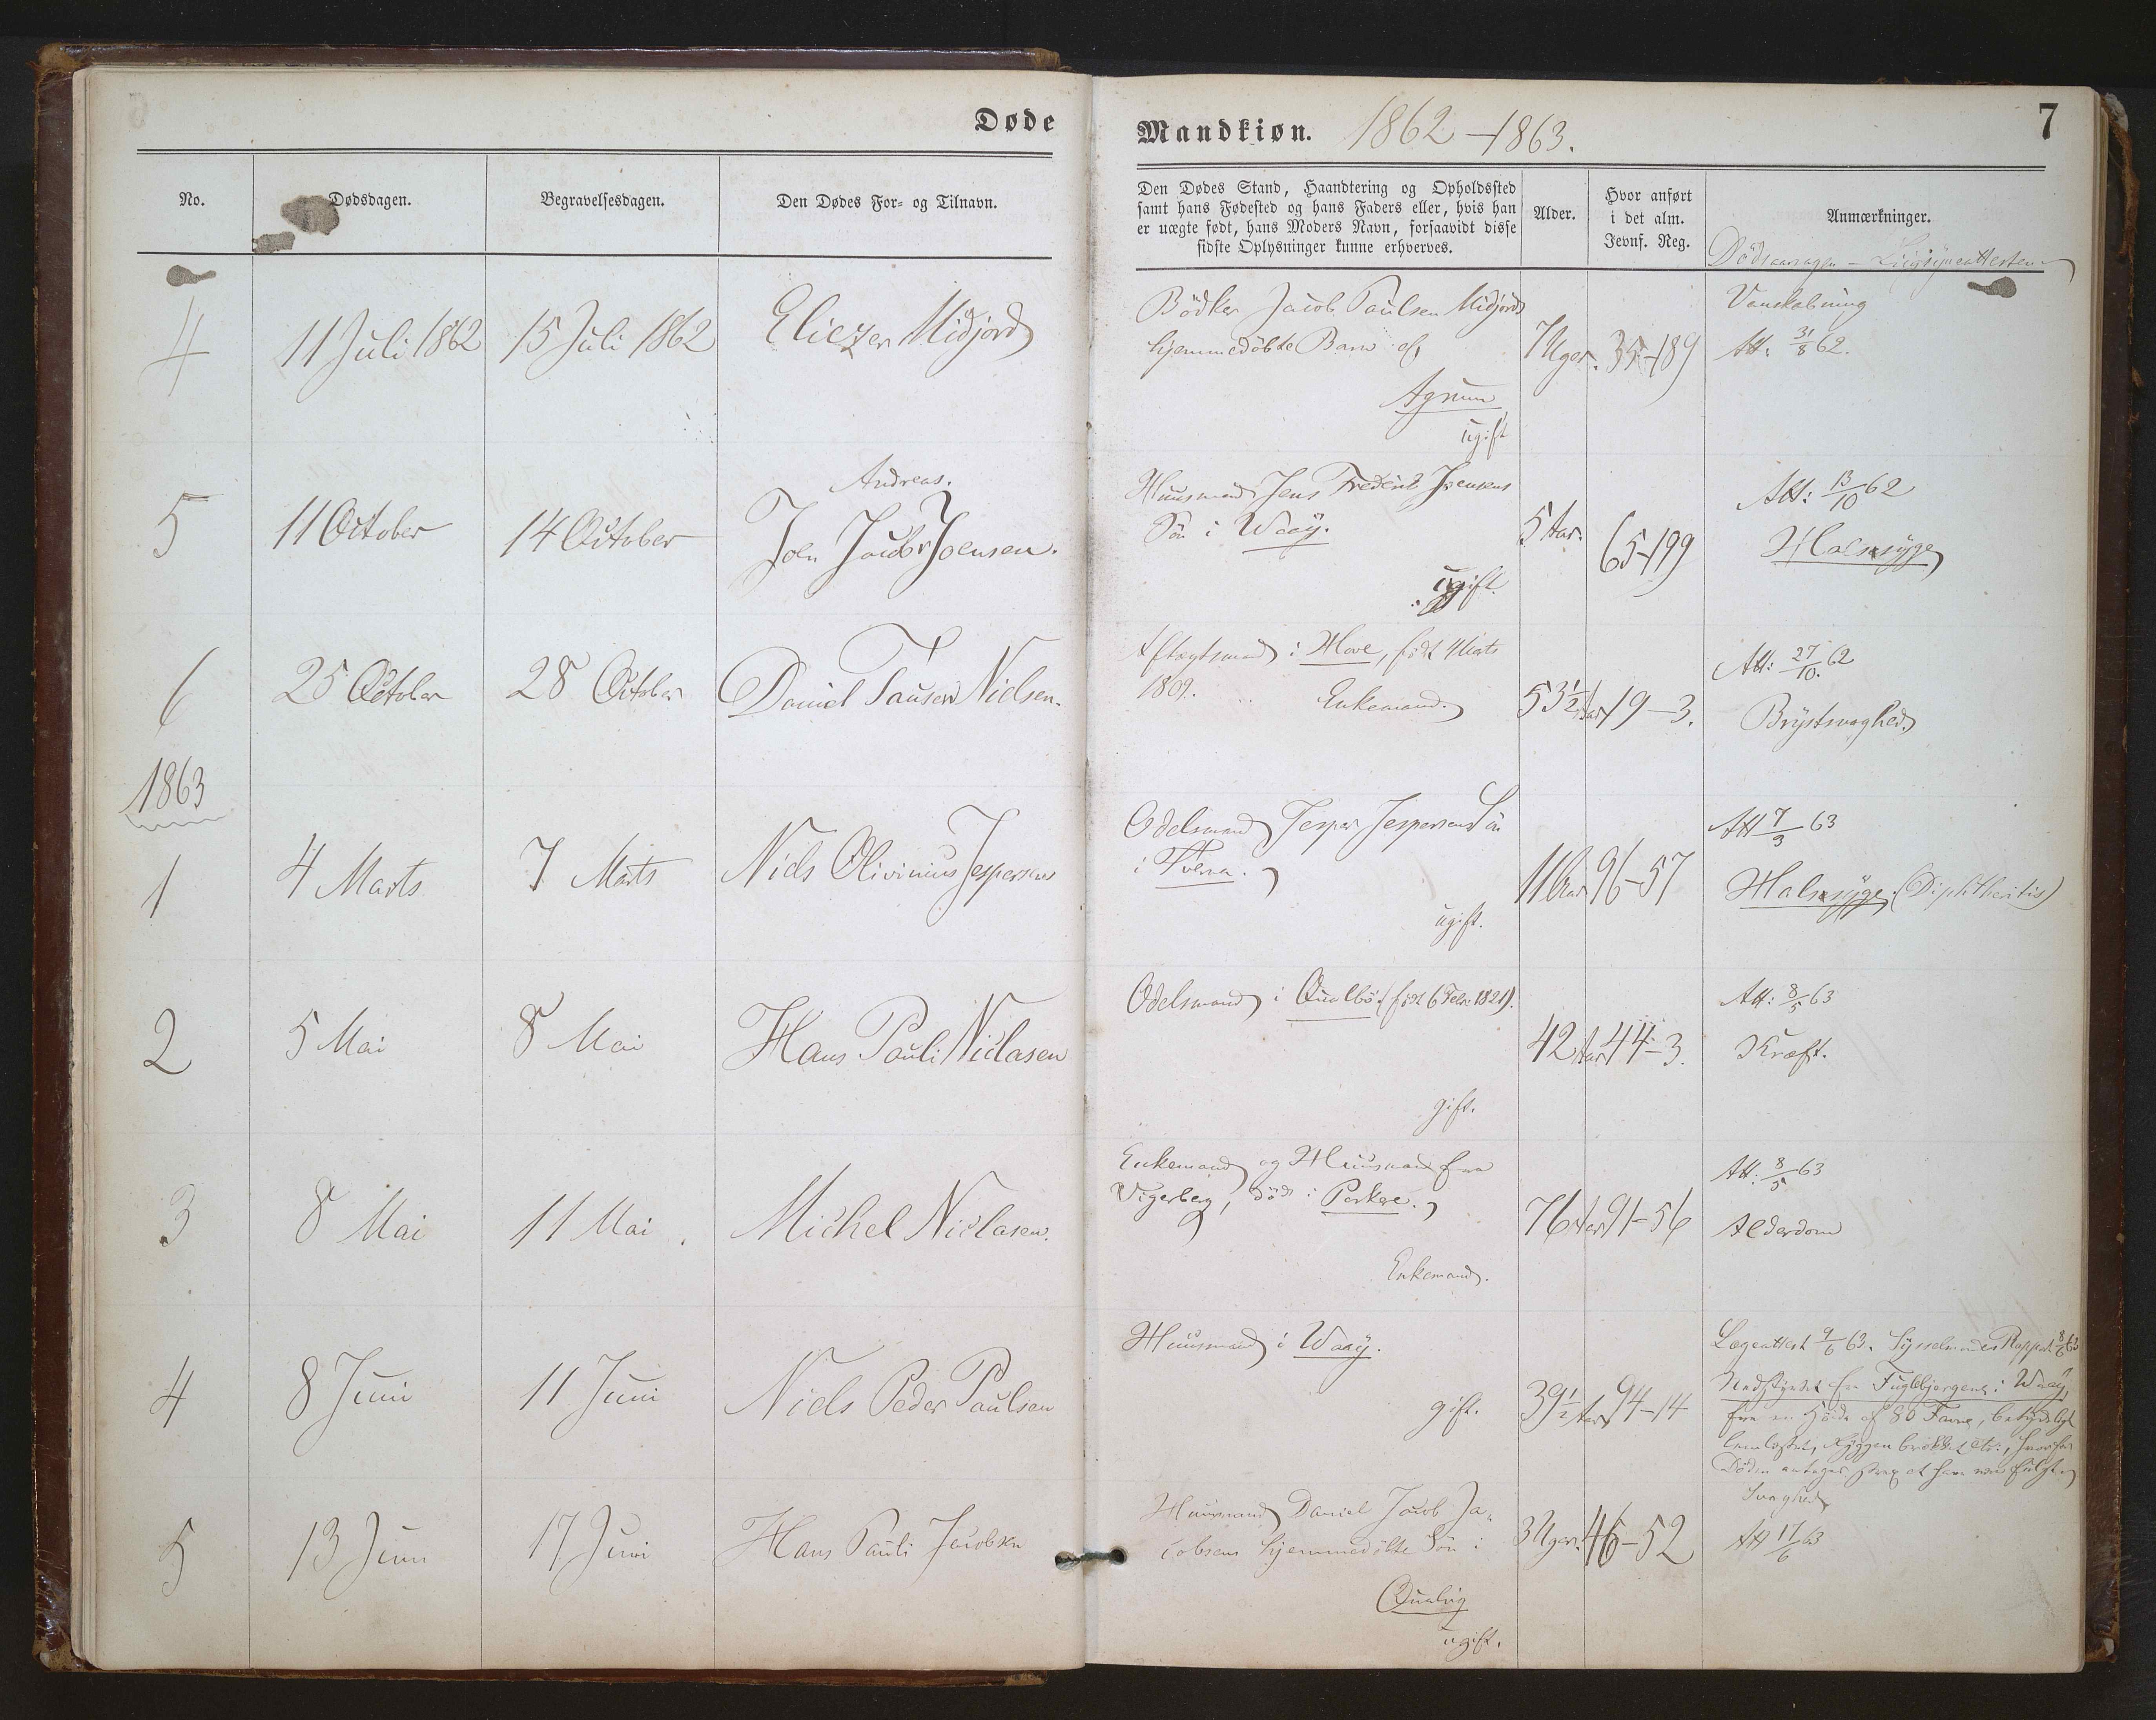 Døde
Mandkiøn. 1862-1863.
7
No.
Dødsdagen.
Begravelsesdagen.
Den Dødes For- og Tilnavn.
Den Dødes Stand, Haandtering og Opholdssted
samt hans Fødested og hans Faders eller, hvis han
er uægte født, hans Moders Navn, forsaavidt disse
sidste Oplysninger kunne erhverves.
Alder.
Hvor anført
i det alm.
Jevnf. Reg.
Anmærkninger.
Dödsaarsagen - Liigsynsattesten
4
11 Juli 1862
15 Juli 1862
Eliezer Midjord
Bödker Jacob Paulsen Midjords
hjemmedöbte Barn af
Agrum
ugift
7 Uger.
35-189
Vanskabning
Att: 31/8 62.
5
11 October
14 October
Andreas.
Joen Jacob Joensen.
Huusmand Jens Frederik Joensens
Sön i Waag.
ugift.
5 Aar.
65-199
Att: 13/10 62
Halssyge
6
25 October
28 October
Daniel Tausen Nielsen.
Aftægtsmand i Hove, född Marts
1809.
Enkemand.
53½ Aar
19-3.
Att: 27/10 62
Brystsvaghed
1863
1
4 Marts
7 Marts
Niels Olivinius Jespersen
Odelsmand Jesper Jespersens Sön
i Fröba.
ugift.
11 Aar
96-57
Att 7/3 63
Halssyge (Diphtheritis)
2
5 Mai
8 Mai
Hans Pauli Niclasen
Odelsmand i Qualbö (född 6 Febr. 1821).
gift.
42 Aar
44-3.
Att: 8/5 63
Kræft.
3
8 Mai
11 Mai
Michel Niclasen.
Enkemand og Huusmand fra
Vigerberg, död i Porkere.
Enkemand.
76 Aar
91-56
Att: 8/5 63
Alderdom
4
8 Juni
11 Juni
Niels Peder Paulsen
Huusmand i Waag.
gift.
39½ Aar
94-14
Lægeattest 9/6 63. Sysselmandens Rapport 8/6 63
Nedstyrtet fra Fuglebjergene i Waag,
fra en Höide af 80 Favne, betydeligt
lemlæstet, Ryggen brækket etc., hvorfor
Döden antages strax at have været fulgt
5
13 Juni
17 Juni
Hans Pauli Jacobsen
Huusmand Daniel Jacob Ja-
cobsens hjemmedöbte Sön i
Qualvig
ugift.
3 Uger.
46-52
Svaghed
Att 17/6 63